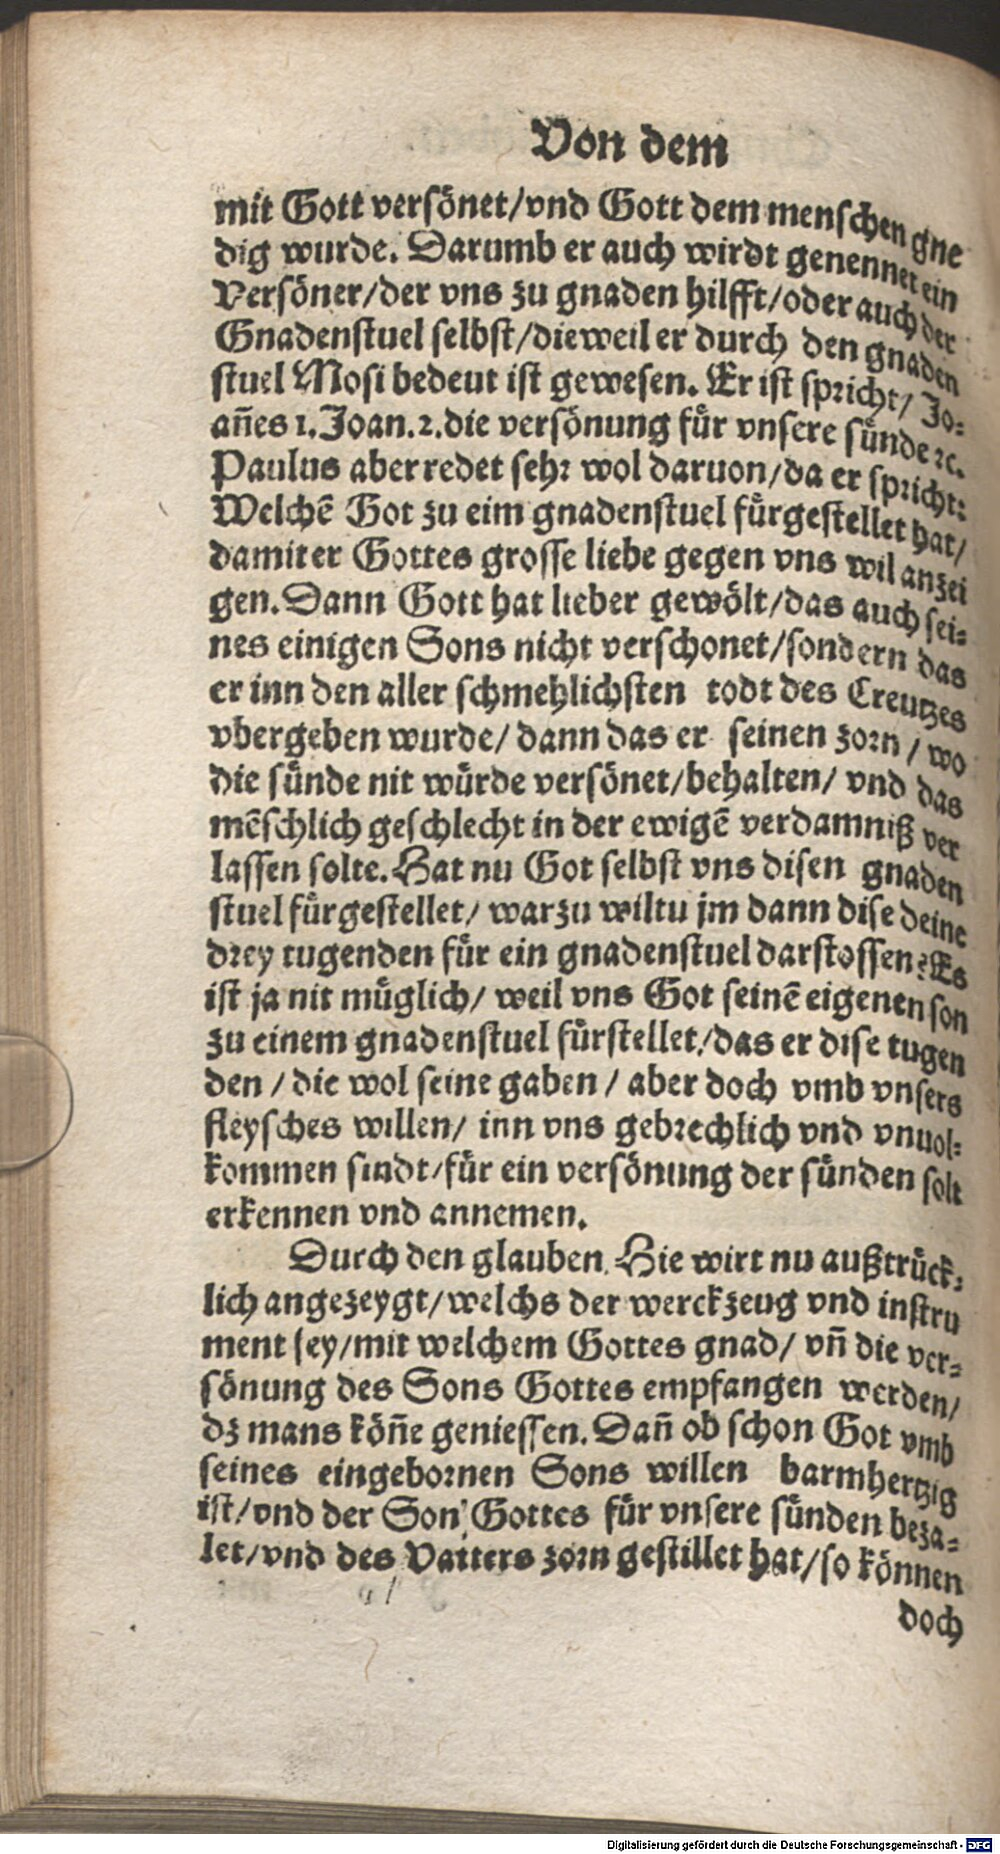 Von dem
mit Gott versönet/vnd Gott dem menschen gne
dig wurde. Darumb er auch wirdt genennet ein
Versöner/der vns zu gnaden hilfft/oder auch der
Gnadenstuel selbst/dieweil er durch den gnaden
stuel Mosi bedeut ist gewesen. Er ist spricht/ Jo-
añes 1. Joan. 2. die versönung für vnsere sünde ꝛc.
Paulus aber redet sehr wol daruon/da er spricht:
Welchē Got zu eim gnadenstuel fürgestellet hat/
damit er Gottes grosse liebe gegen vns wil anzei
gen. Dann Gott hat lieber gewölt/das auch sei-
nes einigen Sons nicht verschonet/sondern das
er inn den aller schmehlichsten todt des Creutzes
vbergeben wurde/ dann das er seinen zorn/ wo
die sünde nit würde versönet/behalten/ vnd das
mēschlich geschlecht in der ewigē verdamniß ver
lassen solte. Hat nu Got selbst vns disen gnaden
stuel fürgestellet/ warzu wiltu jm dann dise deine
drey tugenden für ein gnadenstuel darstossen? Es
ist ja nit müglich/ weil vns Got seinē eigenen son
zu einem gnadenstuel fürstellet/das er dise tugen
den/ die wol seine gaben/ aber doch vmb vnsers
fleysches willen/ inn vns gebrechlich vnd vnuol-
kommen sindt/für ein versönung der sünden solt
erkennen vnd annemen.
Durch den glauben. Hie wirt nu außtrück-
lich angezeygt/welchs der werckzeug vnd instru
ment sey/mit welchem Gottes gnad/ vñ die ver-
sönung des Sons Gottes empfangen werden/
dz mans köñe geniessen. Dañ ob schon Got vmb
seines eingebornen Sons willen barmhertzig
ist/vnd der Son Gottes für vnsere sünden beza-
let/vnd des Vatters zorn gestillet hat/so können
doch
Digitalisierung gefördert durch die Deutsche Forschungsgemeinschaft - DFG